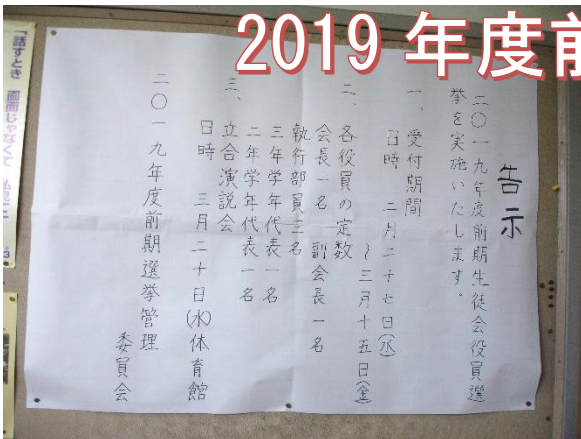 2019 年度前
告示
二〇一九年度前期生徒会役員選
挙を実施いたします。
一、受付期間
日時 二月二十七日(水)
～三月十五日(金)
二、各役員の定数
会長一名 副会長一名
執行部員三名
三年学年代表一名
二年学年代表一名
三、立合演説会
日時 三月二十日(水)体育館
二〇一九年度前期選挙管理
委員会
「話すとき 画面じゃなくて